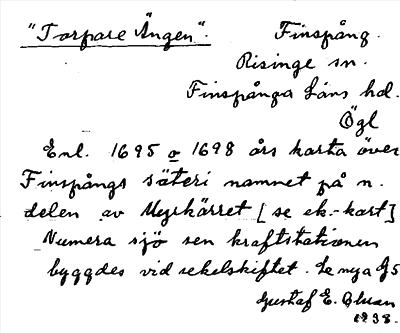 "Torpare Ängen".
Finspång.
Risinge sn.
Finspånga Läns hd.
Ögl
Enl. 1695 o 1698 års karta över
Finspångs säteri namnet på n.
delen av Myrkärret [se ek.-kart]
Numera sjö sen kraftstationen
byggdes vid sekelskiftet. Se nya
Gustaf E.
1938.